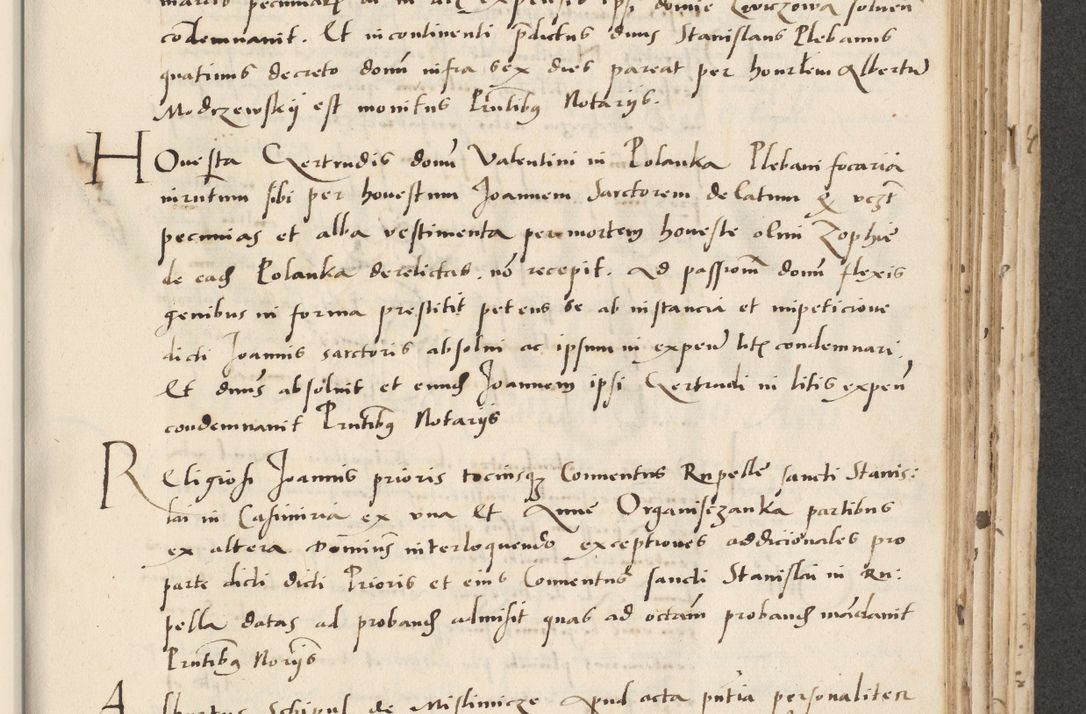 condemnavit. Et incontinenti pdictus dnus Stanislaus Plebanus
quatinus decreto domi infra sex dies pareat per honrlem Albertu
Modrzewskij est monitus Pntibus Notarijs.
Honesta Gertrudis domi Valentini in Polanka Plebani focaria
iurutum sibi per honestum Joannem Sarctorem delatum & vczt
pecunias et alba vestimenta per mortem honeste olim Zophie
de eadem Polanka derelictas. no recepit. Ad passiom domi flexis
genibus in forma prestitit petens se ab instancia et impeticione
dicti Joannis sarctoris absolui ac ipsum in expen litis condemnari.
Et dnus absoluit et eundem Joannem ipsi Gertrudi in litis expen
condemnauit Pntibus Notarijs
Religiosi Joannis prioris tociusque Conuentus Rupelle sancti Stanis:
lai in Casimiria ex vna Et Anne Organiszanka partibus
ex altera Dominus interloquendo exceptiones addicionales pro
parte dicti dicti Prioris et eius Conuentus sancti Stanislai in Ru:
pella datas ad proband admisit quas ad octam proband mandauit
Pntibus Norijs
Albertus Schipul de Mislimicze Apud acta pntia personaliter